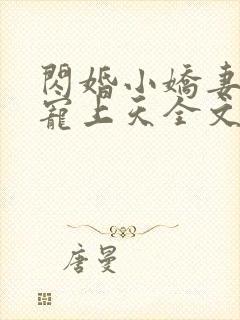 閃婚小嬌妻
寵上天全文
唐曼